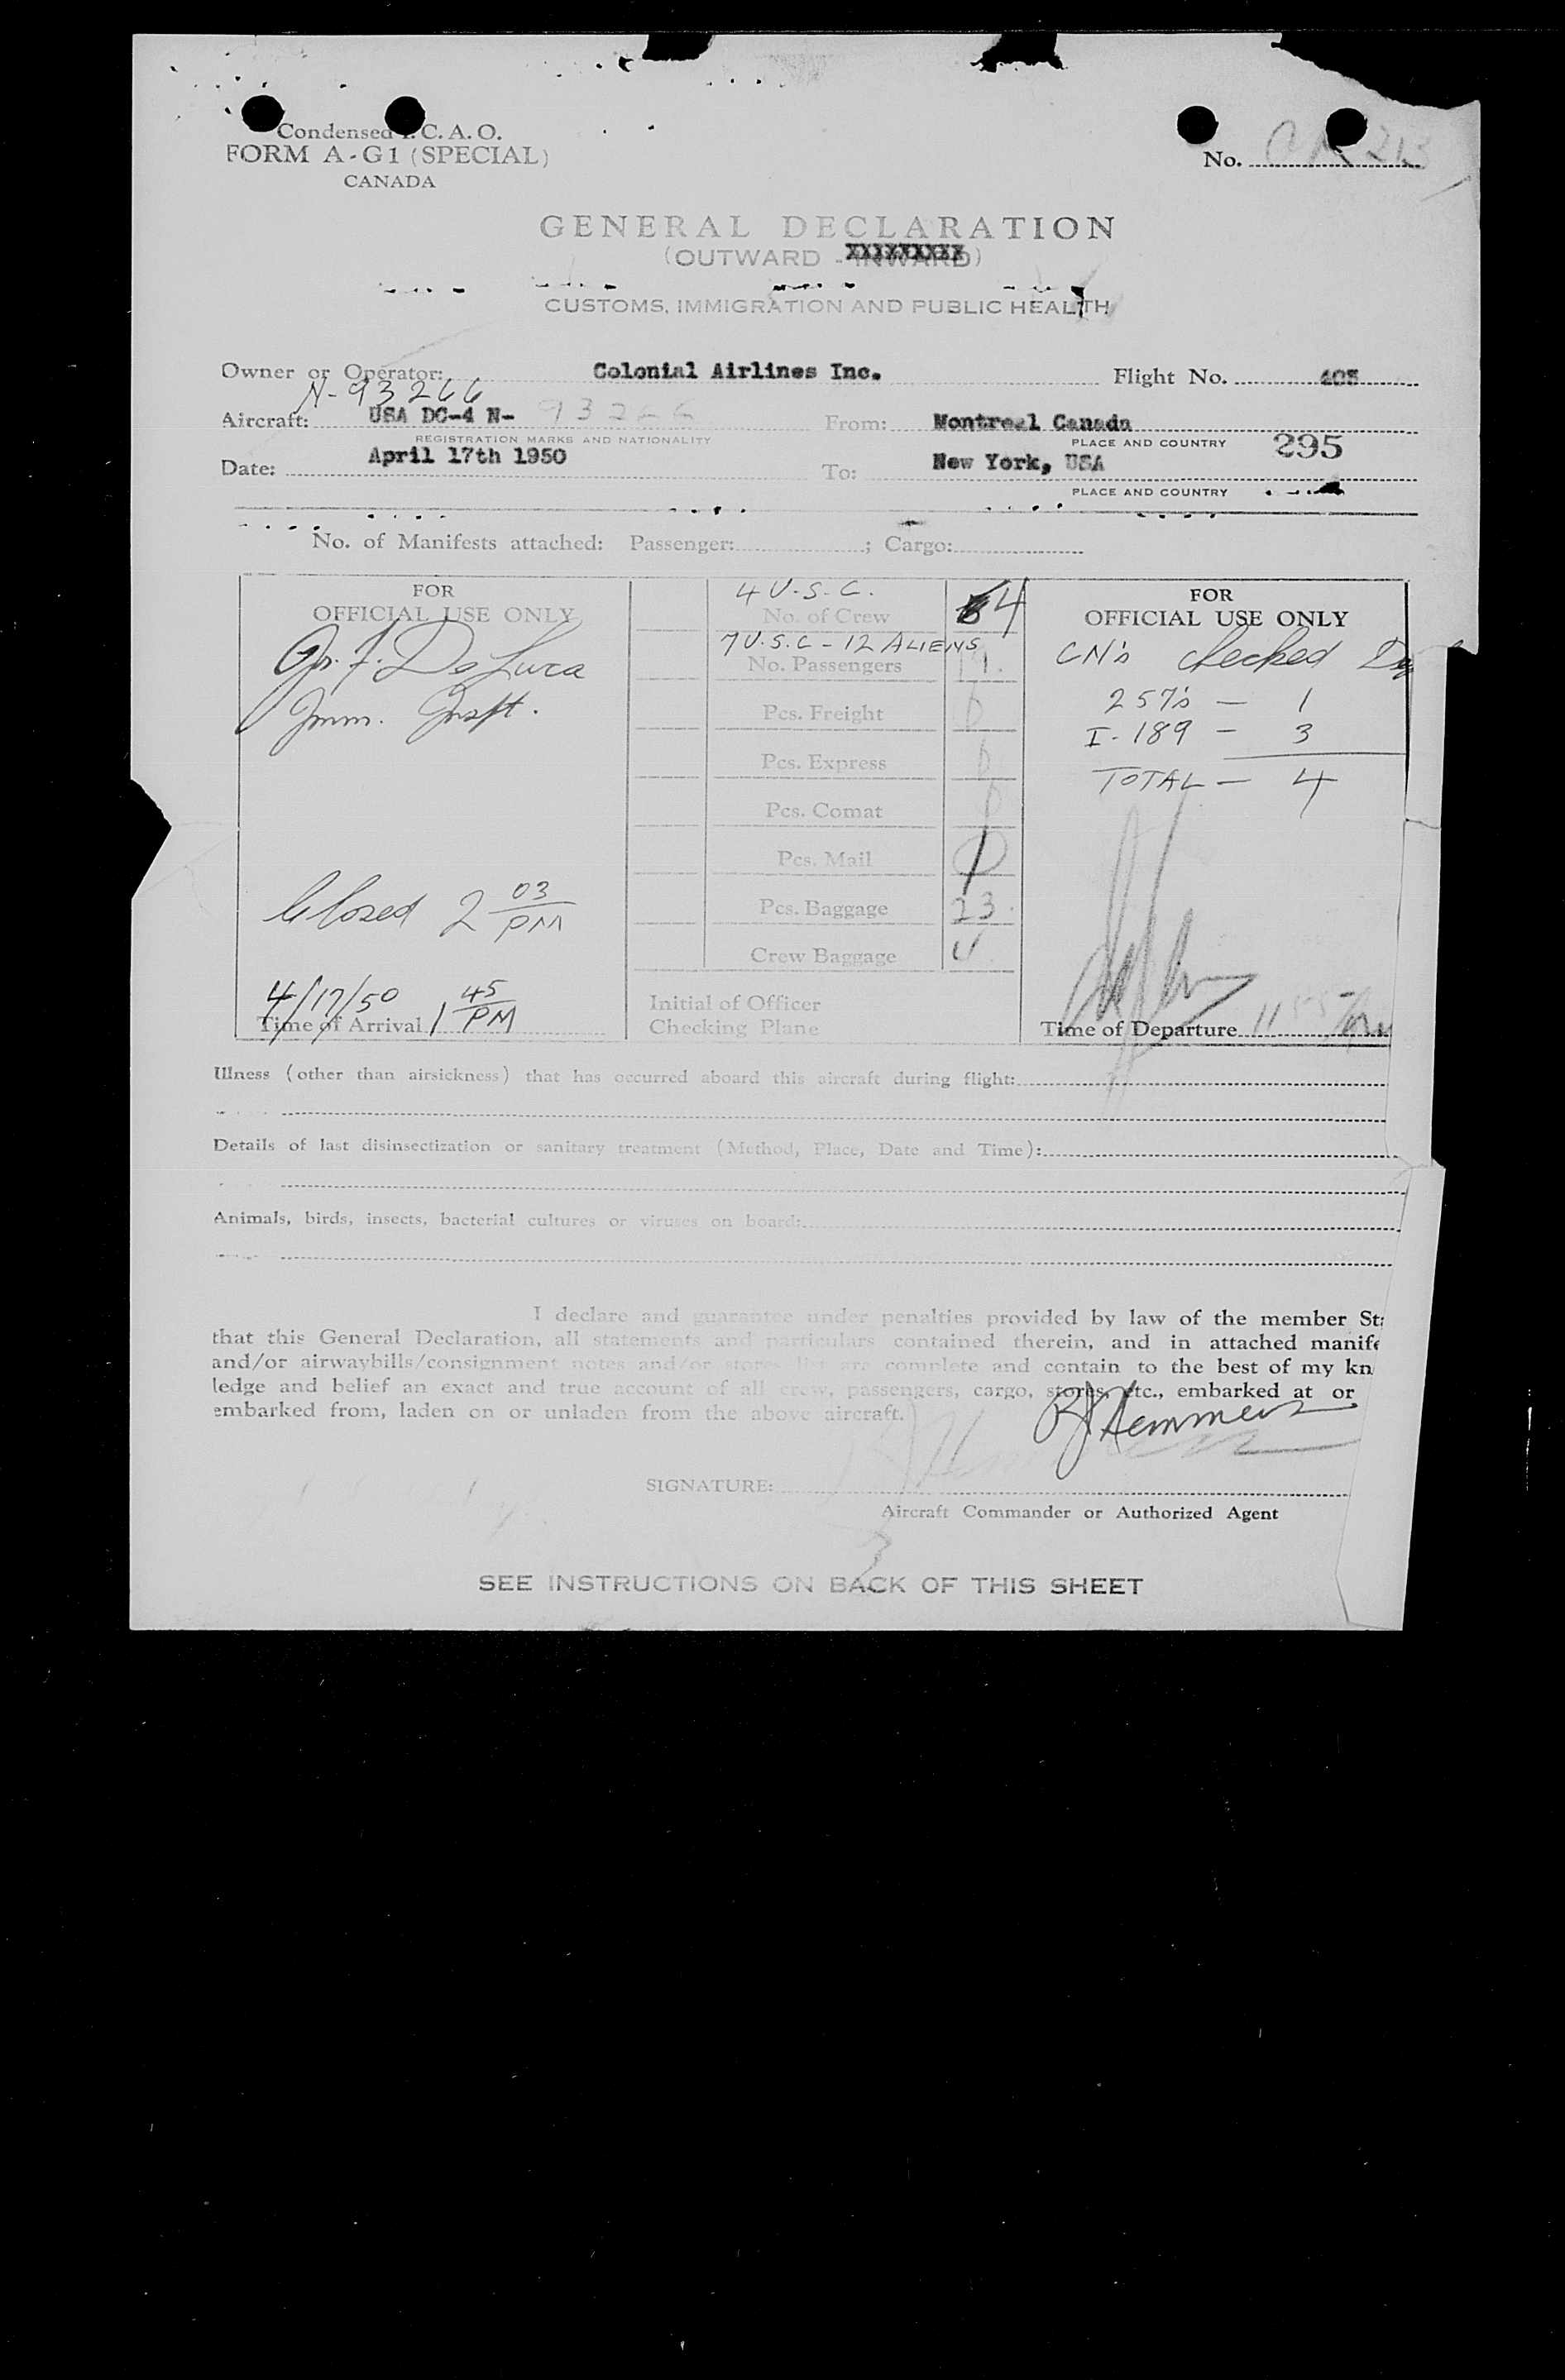 Condensed I. C. A. O.
FORM A-G1 (SPECIAL)
CANADA
No.
GENERAL DECLARATION
(OUTWARD - INWARD)
CUSTOMS, IMMIGRATION AND PUBLIC HEALTH
Owner or Operator: Colonial Airlines Inc. Flight No. 405
N-93266
Aircraft: USA DC-4 N- 93266 From: Montreal Canada
REGISTRATION MARKS AND NATIONALITY PLACE AND COUNTRY 295
Date: April 17th 1950 To: New York, USA
PLACE AND COUNTRY
No. of Manifests attached: Passenger: ; Cargo:
FOR
OFFICIAL USE ONLY
De Luca
Imm. Inspt.
Closed 2 03 PM
4/17/50
Time of Arrival 1 45 PM
4 U.S.C.
No. of Crew 4
7 U.S.C - 12 ALIENS
No. Passengers 19
Pcs. Freight
Pcs. Express
Pcs. Comat
Pcs. Mail
Pcs. Baggage 23
Crew Baggage
Initial of Officer
Checking Plane
FOR
OFFICIAL USE ONLY
CN's checked
257's — 1
I-189 — 3
TOTAL — 4
Time of Departure 11
Illness (other than airsickness) that has occurred aboard this aircraft during flight:
Details of last disinsectization or sanitary treatment (Method, Place, Date and Time):
Animals, birds, insects, bacterial cultures or viruses on board:
I declare and guarantee under penalties provided by law of the member St
that this General Declaration, all statements and particulars contained therein, and in attached manife
and/or airwaybills/consignment notes and/or stores list are complete and contain to the best of my kn
ledge and belief an exact and true account of all crew, passengers, cargo, stores, etc., embarked at or
embarked from, laden on or unladen from the above aircraft.
SIGNATURE:
Aircraft Commander or Authorized Agent
SEE INSTRUCTIONS ON BACK OF THIS SHEET